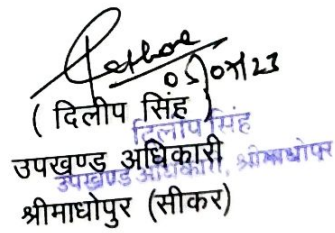 05/07/23
( दिलीप सिंह )
दिलीप सिंह
उपखण्ड अधिकारी
उपखण्ड अधिकारी, श्रीमाधोपुर
श्रीमाधोपुर (सीकर)